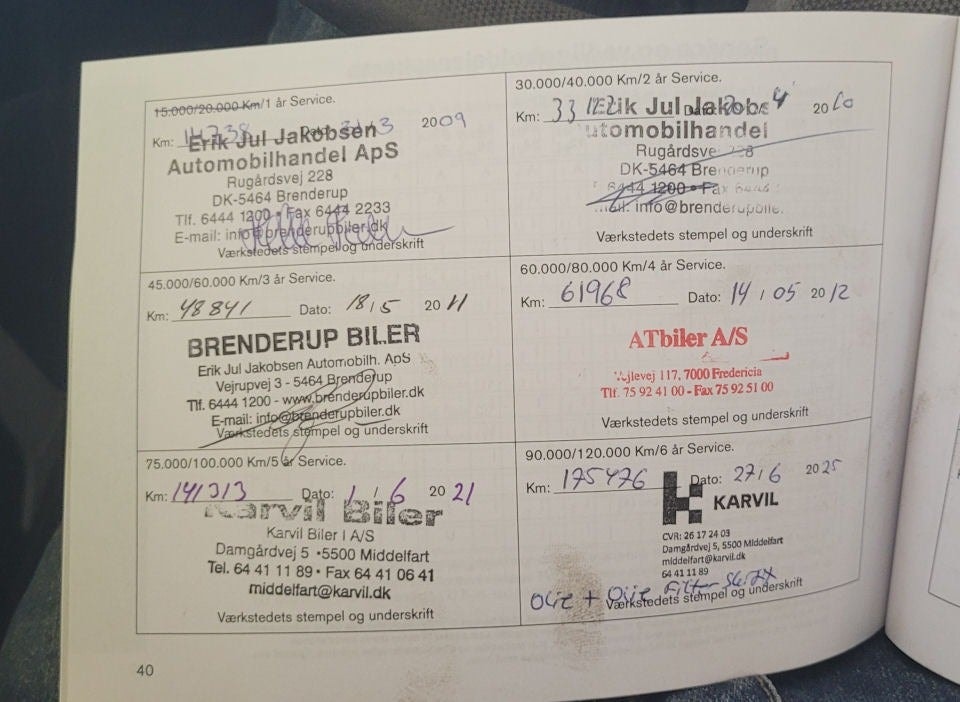 15.000/20.000 Km/1 år Service.
Km: 14738 Dato: 3 2009
Erik Jul Jakobsen
Automobilhandel ApS
Rugårdsvej 228
DK-5464 Brenderup
Tlf. 6444 1200 • Fax 6444 2233
E-mail: info@brenderupbiler.dk
Værkstedets stempel og underskrift
30.000/40.000 Km/2 år Service.
Km: 4 2010
Erik Jul Jakobs
utomobilhandel
Rugårdsve 228
DK-5464 Brenderup
6444 1200 • Fax 6446
mail: info@brenderupbile.
Værkstedets stempel og underskrift
45.000/60.000 Km/3 år Service.
Km: 48841 Dato: 18/5 2011
BRENDERUP BILER
Erik Jul Jakobsen Automobilh. ApS
Vejrupvej 3 - 5464 Brenderup
Tlf. 6444 1200 - www.brenderupbiler.dk
E-mail: info@brenderupbiler.dk
Værkstedets stempel og underskrift
60.000/80.000 Km/4 år Service.
Km: 61968 Dato: 14/05 2012
ATbiler A/S
Vejlevej 117, 7000 Fredericia
Tlf. 75 92 41 00 - Fax 75 92 51 00
Værkstedets stempel og underskrift
75.000/100.000 Km/5 år Service.
Km: 141313 Dato: 1/6 2021
Karvil Biler
Karvil Biler I A/S
Damgårdvej 5 • 5500 Middelfart
Tel. 64 41 11 89 • Fax 64 41 06 41
middelfart@karvil.dk
Værkstedets stempel og underskrift
90.000/120.000 Km/6 år Service.
Km: 175476 Dato: 27/6 2025
KARVIL
CVR: 26 17 24 03
Damgårdvej 5, 5500 Middelfart
middelfart@karvil.dk
64 41 11 89
Olie + Olie Filter Skift
Værkstedets stempel og underskrift
40